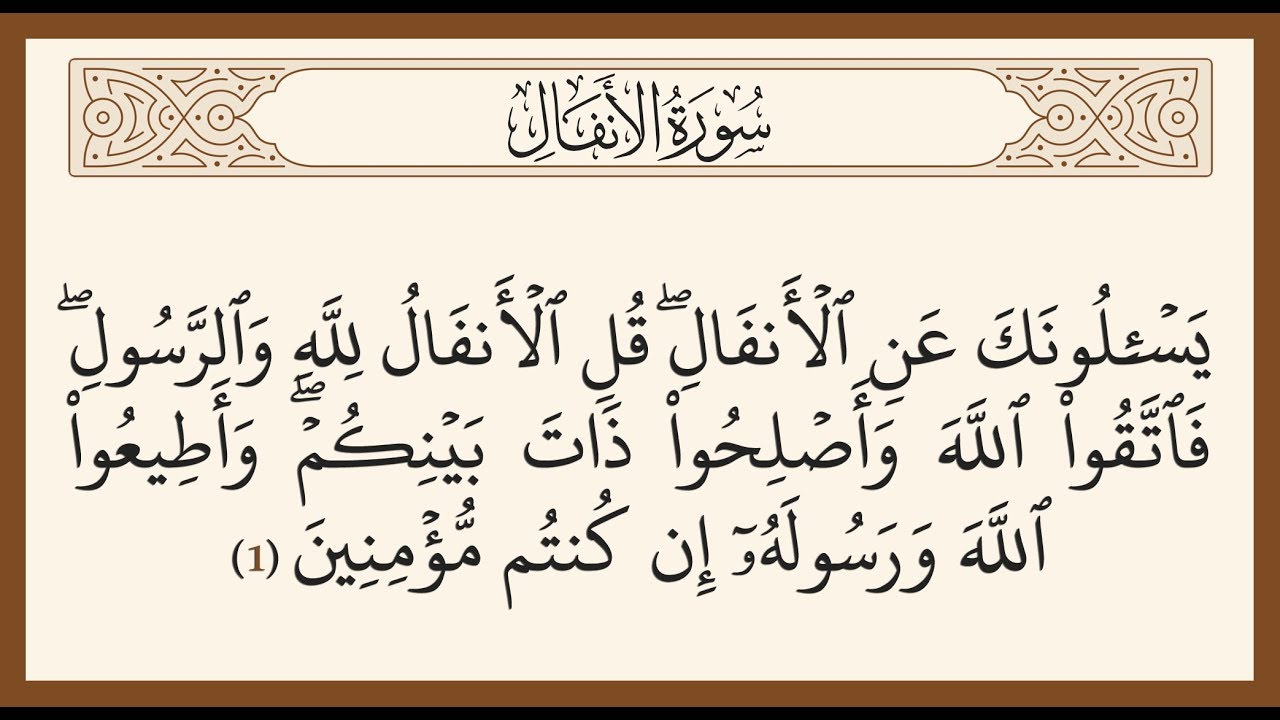 سُورَةُ الأَنفَالِ
يَسْـَٔلُونَكَ عَنِ ٱلْأَنفَالِ ۖ قُلِ ٱلْأَنفَالُ لِلَّهِ وَٱلرَّسُولِ ۖ
فَٱتَّقُوا۟ ٱللَّهَ وَأَصْلِحُوا۟ ذَاتَ بَيْنِكُمْ ۖ وَأَطِيعُوا۟
ٱللَّهَ وَرَسُولَهُۥٓ إِن كُنتُم مُّؤْمِنِينَ (1)